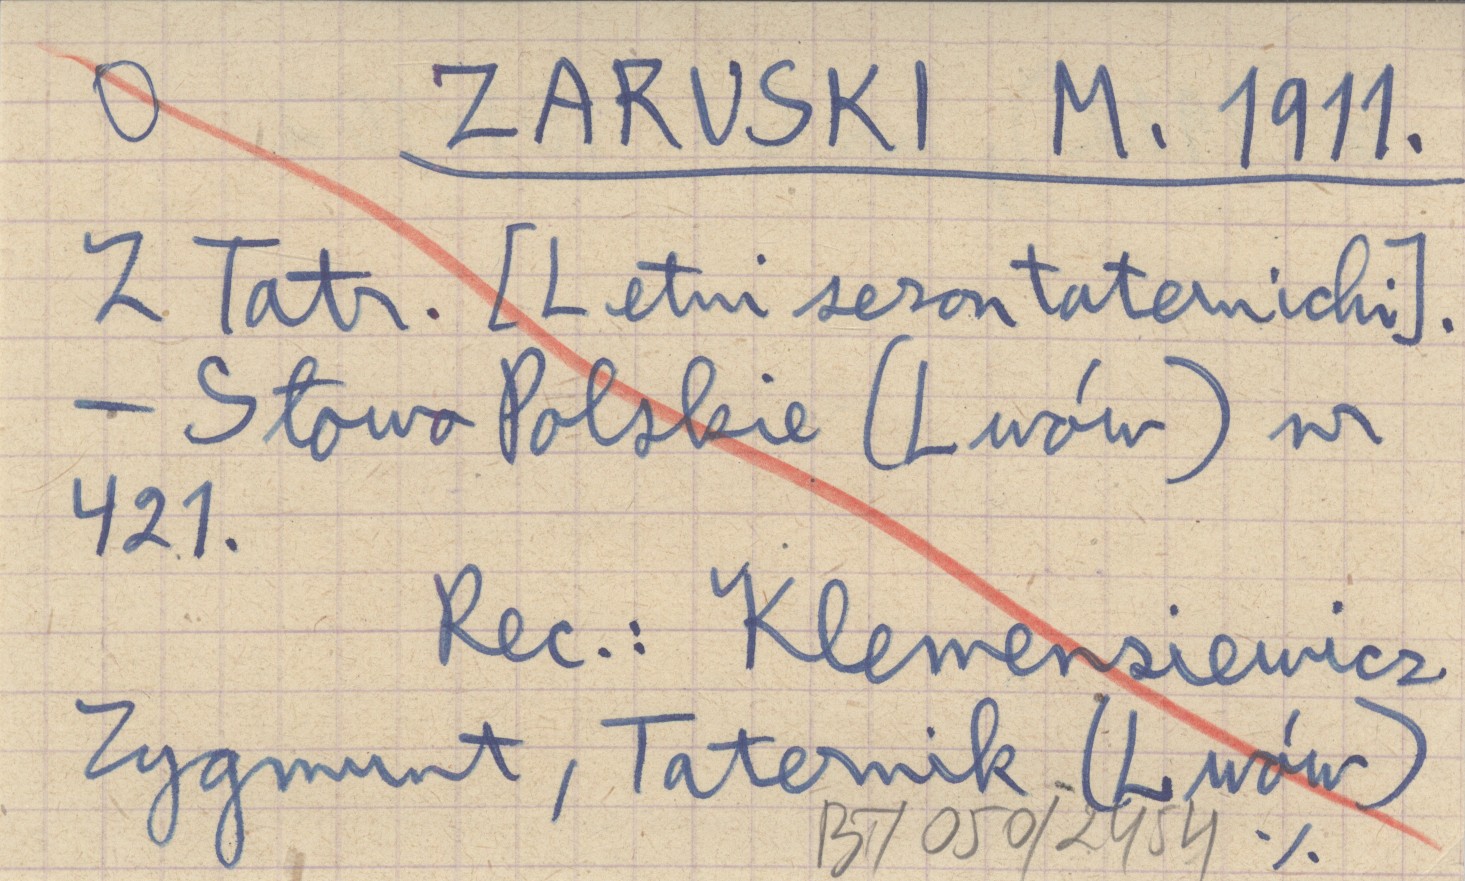 O ZARUSKI M. 1911.
Z Tatr. [Letni sezon taternicki].
– Słowo Polskie (Lwów) nr
421.
Rec.: Klemensiewicz
Zygmunt, Taternik (Lwów)
BT/050/2454 ·/.